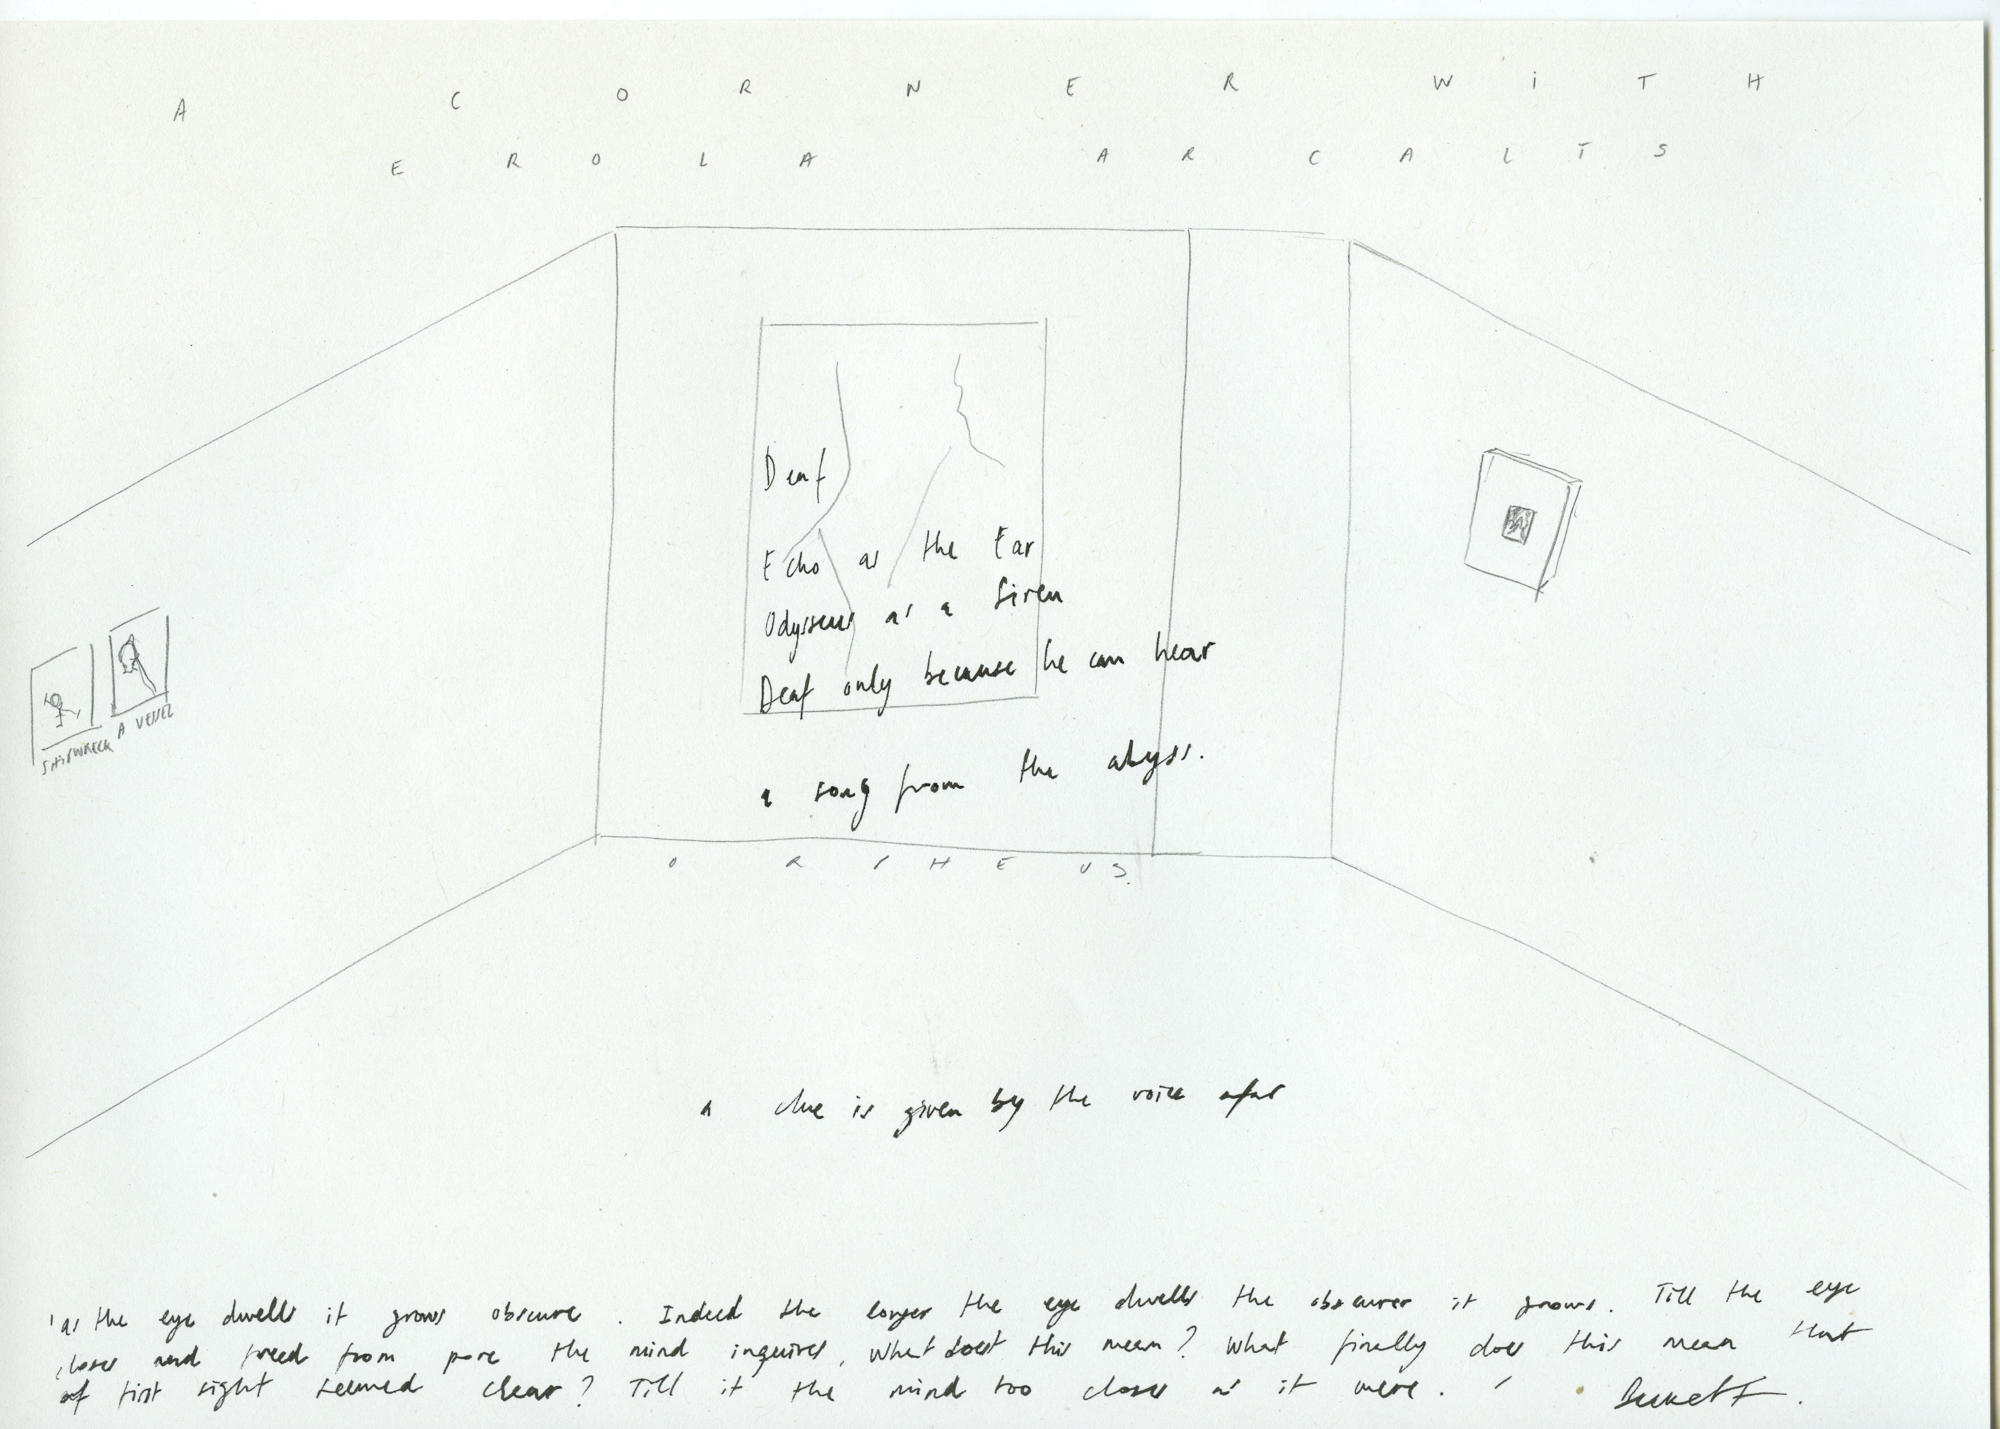 A CORNER WiTH
EROLA ARCALTS
Deaf
Echo as the Ear
Odysseus as a Siren
Deaf only because he can hear
a song from the abyss.
SHIPWRECK
A VESSEL
ORPHEUS.
a clue is given by the voice afar
'as the eye dwells it grows obscure. Indeed the longer the eye dwells the obscurer it grows. Till the eye
closes and freed from pore the mind inquires, What does this mean? What finally does this mean that
at first sight seemed clear? Till it the mind too closes as it were.'
Beckett.